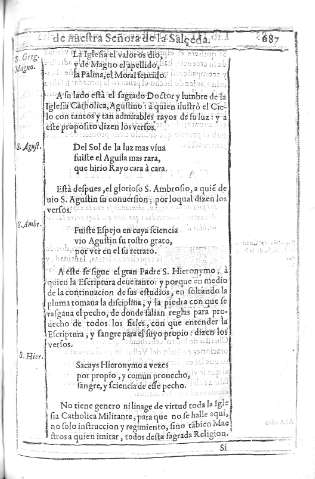 de nuestra Señora de la Salçeda. 687
S. Greg. Magno.
La Iglesia el valor os dio,
y de Magno el apellido,
la Palma, el Moral sentido.
A su lado està el sagrado Doctor y lumbre de la
Iglesia Catholica, Agustino: à quien ilustrò el Cie-
lo con tantos y tan admirables rayos de su luz: y a
este proposito dizen los versos.
S. Agust.
Del Sol de la luz mas viua
fuiste el Aguila mas rara,
que hirio Rayo cara à cara.
Està despues, el glorioso S. Ambrosio, a quiē de
uio S. Agustin su conuersion; por lo qual dizen los
versos.
S. Ambr.
Fuiste Espejo en cuya sciencia
vio Agustin su rostro grato,
por ver en el su retrato.
A este se sigue el gran Padre S. Hieronymo, à
quien la Escriptura deue tanto: y porque en medio
de la continuacion de sus estudios, en soltando la
pluma tomaua la disciplina, y la piedra con que se
rasgaua el pecho, de donde salian reglas para pro-
uecho de todos los fieles, con que entender la
Escriptura, y sangre para el suyo propio: dizen los
versos.
S. Hier.
Sacays Hieronymo a vezes
por propio, y comun prouecho,
sangre, y sciencia de esse pecho.
No tiene genero ni linage de virtud toda la Igle
sia Catholica Militante, para que no se halle aqui,
no solo instruccion y regimiento, sino tābien Mae
stros a quien imitar, todos desta sagrada Religion.
Si